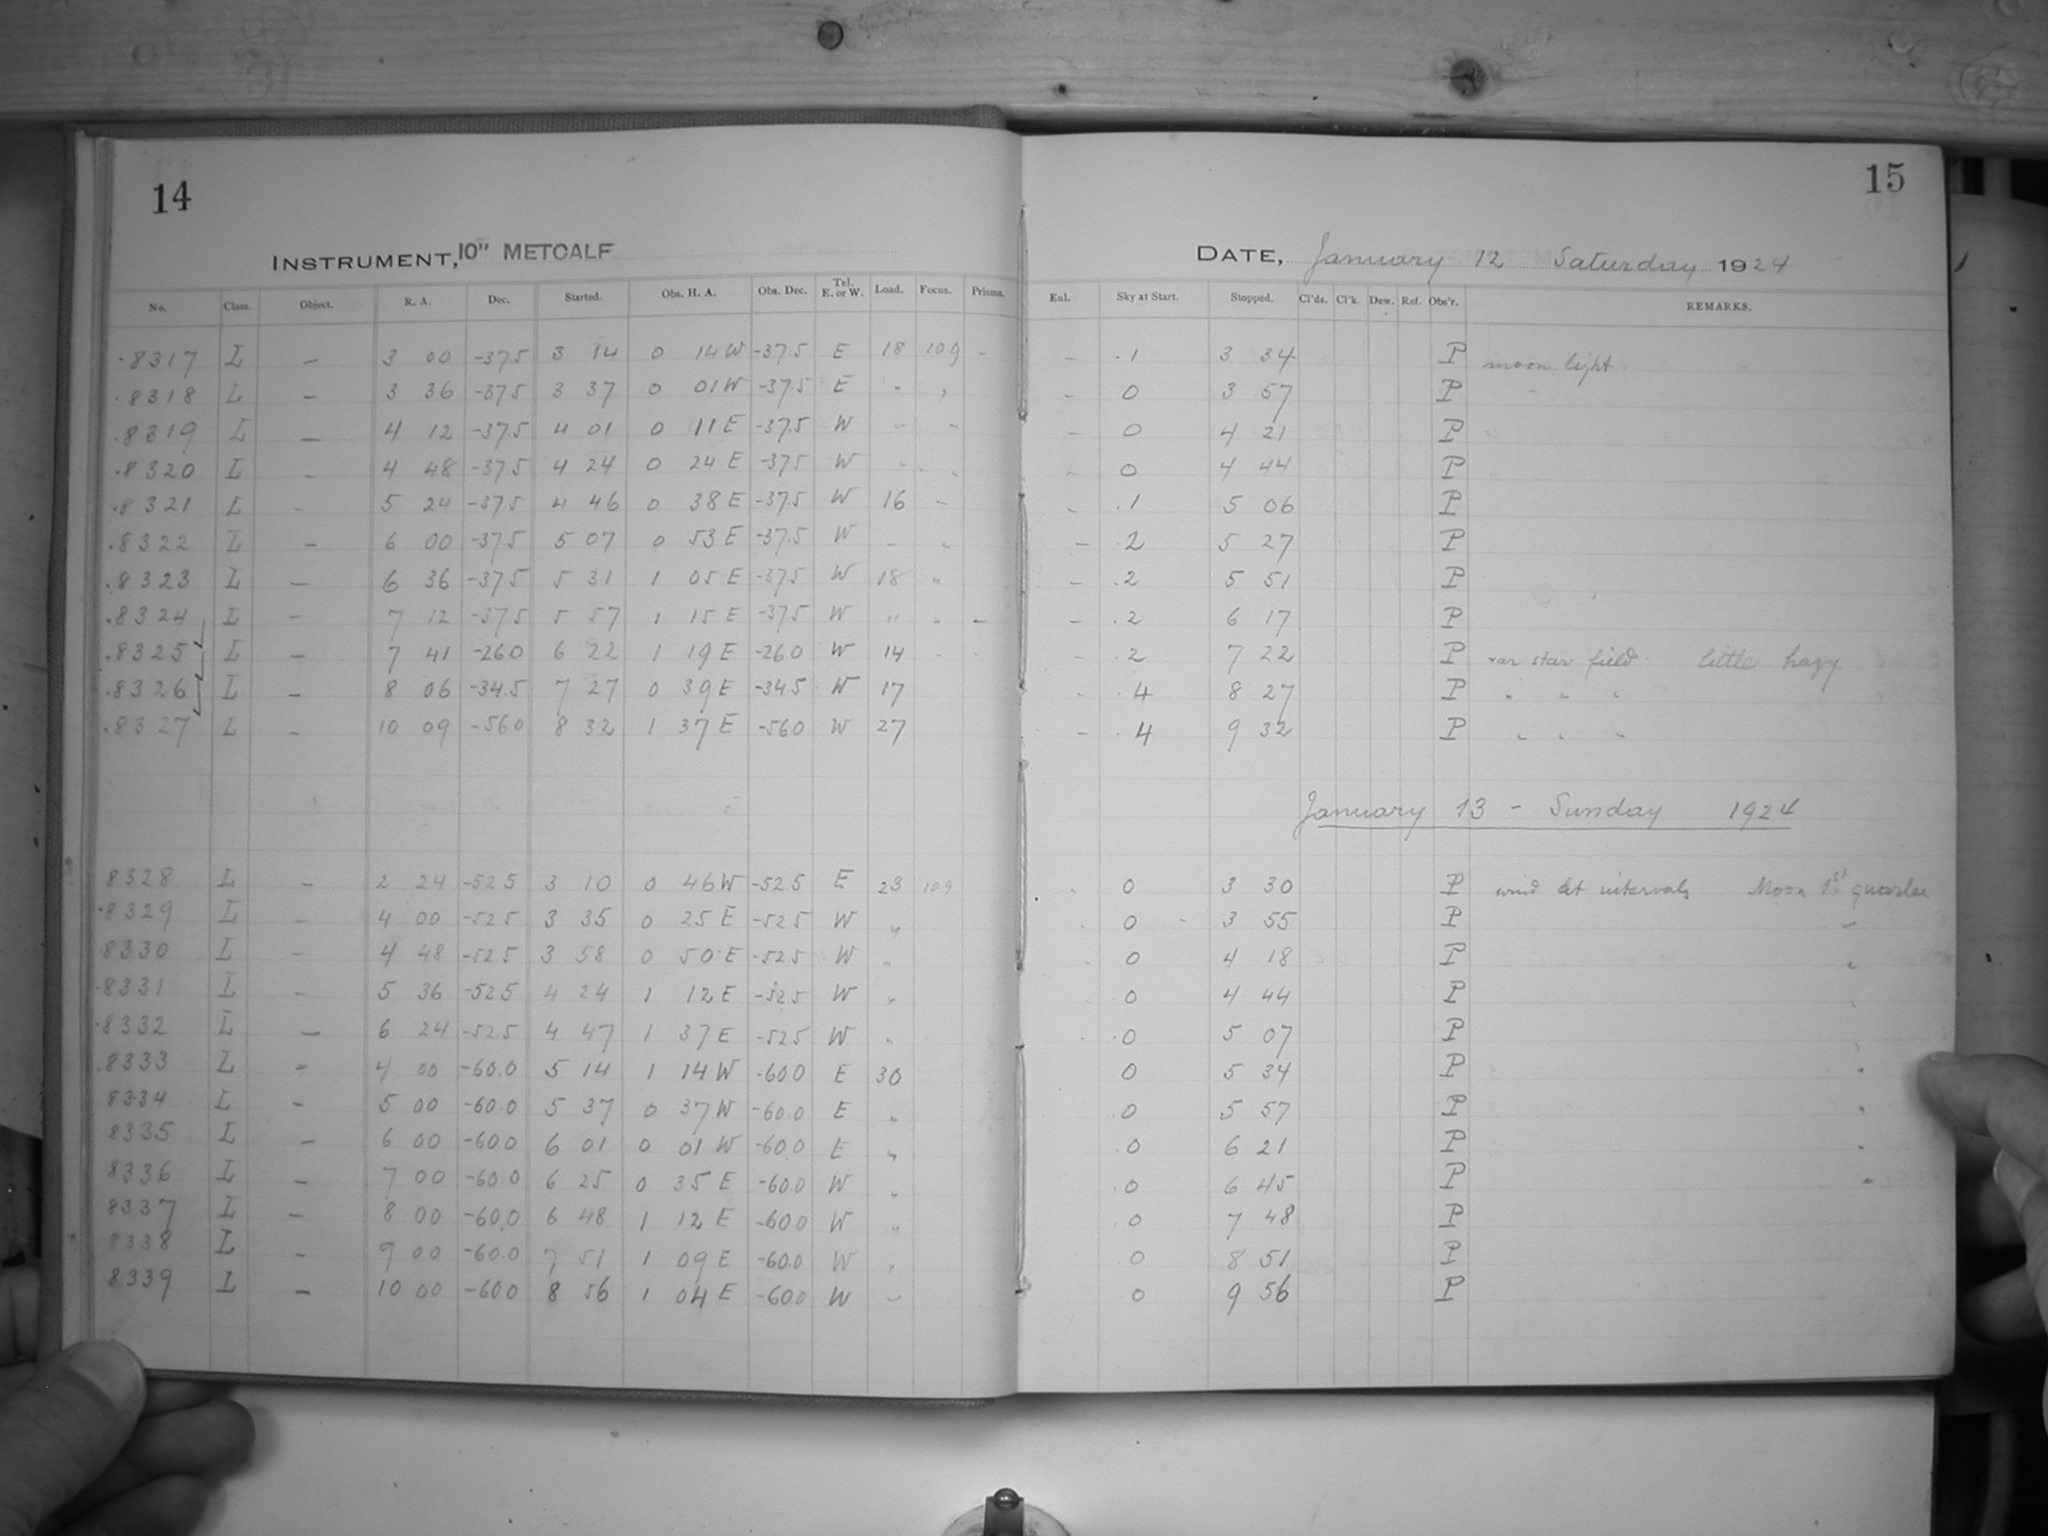 14
INSTRUMENT, 10" METCALF
No. Class. Object. R. A. Dec. Started. Obs. H. A. Obs. Dec. Tel. E. or W. Load. Focus. Prisms.
.8317 L — 3 00 -37.5 3 14 0 14 W -37.5 E 18 10.9 -
.8318 L — 3 36 -37.5 3 37 0 01 W -37.5 E " "
.8319 L — 4 12 -37.5 4 01 0 11 E -37.5 W " "
.8320 L — 4 48 -37.5 4 24 0 24 E -37.5 W " "
.8321 L - 5 24 -37.5 4 46 0 38 E -37.5 W 16 "
.8322 L — 6 00 -37.5 5 07 0 53 E -37.5 W " "
.8323 L — 6 36 -37.5 5 31 1 05 E -37.5 W 18 "
.8324 L — 7 12 -37.5 5 57 1 15 E -37.5 W " " -
.8325 L — 7 41 -26.0 6 22 1 19 E -26.0 W 14 - -
.8326 L — 8 06 -34.5 7 27 0 39 E -34.5 W 17
.8327 L — 10 09 -56.0 8 32 1 37 E -56.0 W 27
8328 L — 2 24 -52.5 3 10 0 46 W -52.5 E 23 10.9
.8329 L — 4 00 -52.5 3 35 0 25 E -52.5 W "
.8330 L — 4 48 -52.5 3 58 0 50 E -52.5 W "
.8331 L - 5 36 -52.5 4 24 1 12 E -52.5 W "
.8332 L — 6 24 -52.5 4 47 1 37 E -52.5 W "
.8333 L - 4 00 -60.0 5 14 1 14 W -60.0 E 30
8334 L — 5 00 -60.0 5 37 0 37 W -60.0 E "
8335 L — 6 00 -60.0 6 01 0 01 W -60.0 E "
8336 L — 7 00 -60.0 6 25 0 35 E -60.0 W "
8337 L — 8 00 -60.0 6 48 1 12 E -60.0 W "
8338 L — 9 00 -60.0 7 51 1 09 E -60.0 W "
8339 L — 10 00 -60.0 8 56 1 04 E -60.0 W "
15
DATE, January 12 Saturday 1924
Eal. Sky at Start. Stopped. Cl'ds. Cl'k. Dew. Ref. Obs'r. REMARKS.
- .1 3 34 P moon light
- 0 3 57 P "
- 0 4 21 P
- 0 4 44 P
- .1 5 06 P
- .2 5 27 P
- .2 5 51 P
- .2 6 17 P
- .2 7 22 P var star field. little hazy
- .4 8 27 P " " "
- .4 9 32 P " " "
January 13 - Sunday 1924
- 0 3 30 P wind at intervals Moon 1st quarter
- 0 - 3 55 P "
- 0 4 18 P "
0 4 44 P "
.0 5 07 P "
0 5 34 P "
.0 5 57 P "
.0 6 21 P "
.0 6 45 P "
0 7 48 P
0 8 51 P
0 9 56 P